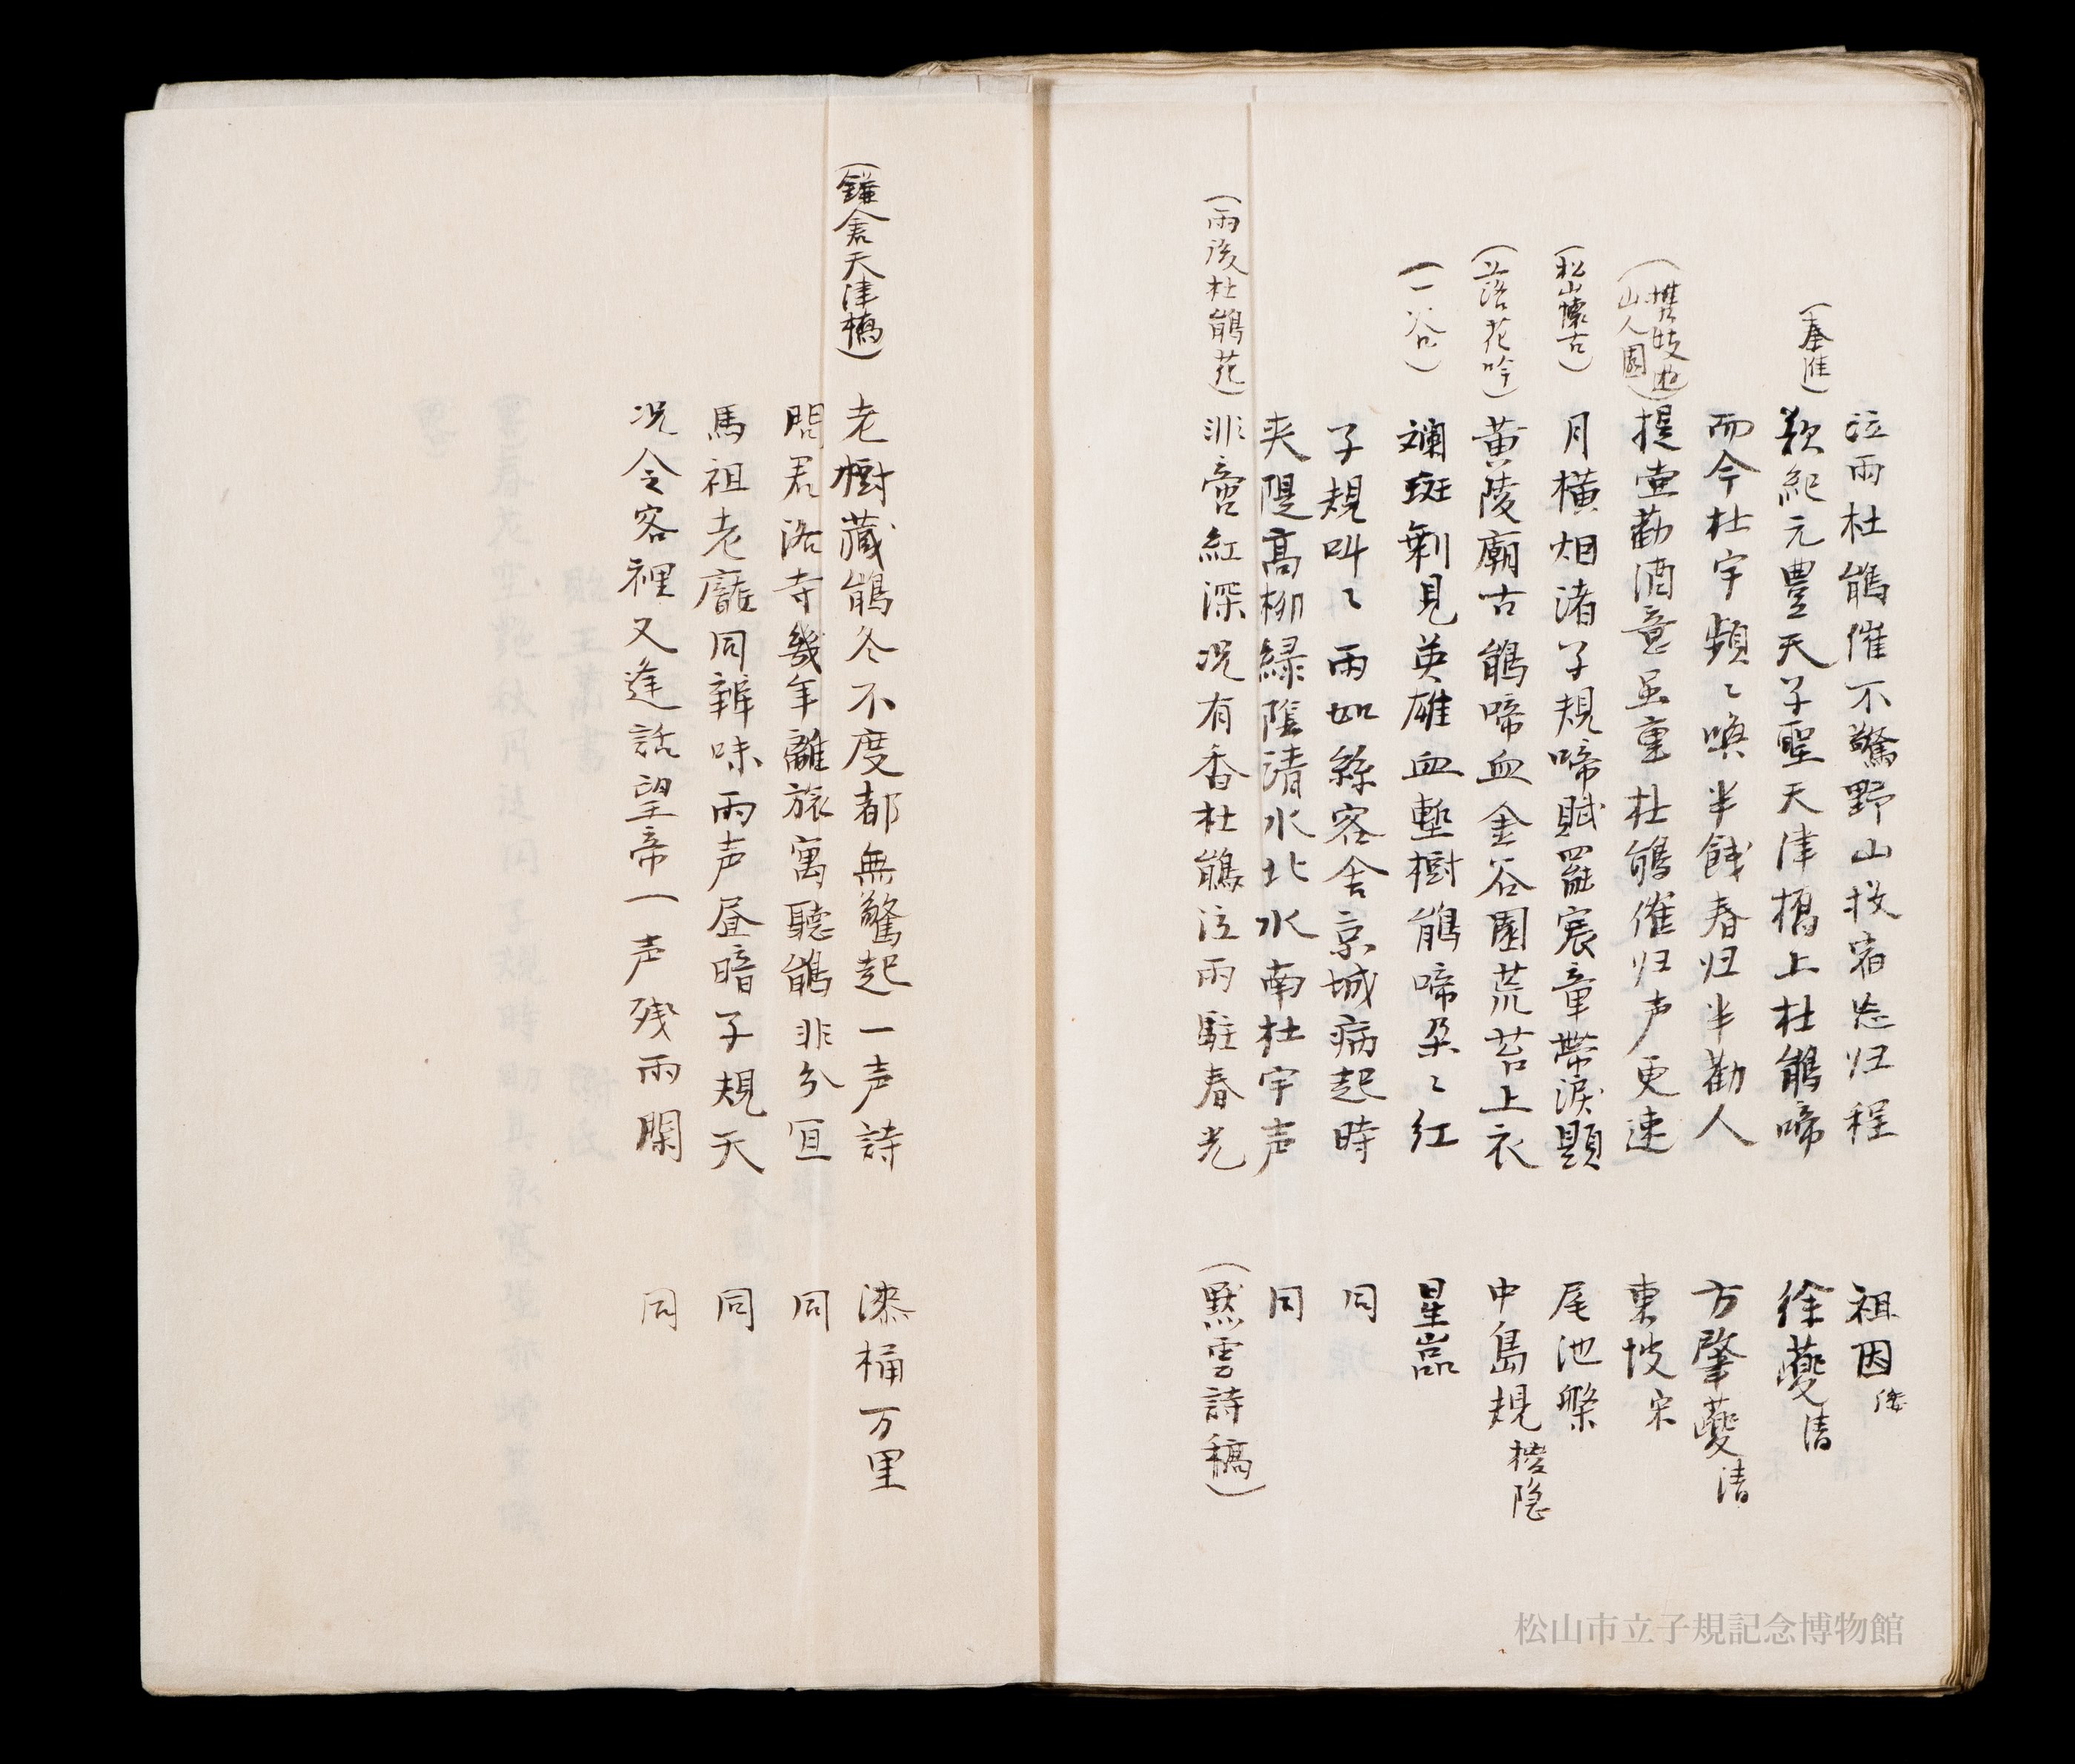 泣雨杜鵑催不驚野山投宿忘归程 祖因
(奉進) 歎紀元豊天子聖天津橋上杜鵑啼 徐夔清
而今杜宇頻〻喚半餞春归半勸人 方肇夔清
(携妓遊山人園) 提壷勸酒意虽重杜鵑催归声更速 東坡宋
(松山懐古) 月横烟渚子規啼賦罷宸章帯涙題 尾池槃
(落花吟) 黄陵廟古鵑啼血金谷園荒苔上衣 中島規棕隠
(一谷) 斕斑剰見英雄血塹樹鵑啼朶〻紅 星巌
子規叫〻雨如絲客舎京城病起時 同
夾隄高柳緑陰清水北水南杜宇声 同
(雨後杜鵑花) 非啻紅深况有香杜鵑泣雨駐春光 (黙雲詩稿)
(鎌倉天津橋) 老樹蔵鵑冬不度都無驚起一声詩 漆桶万里
問君洛寺幾年離旅寓聴鵑非分宜 同
馬祖老龐同辨味雨声昼暗子規天 同
况今客裡又逢話望帝一声残雨闌 同
松山市立子規記念博物館